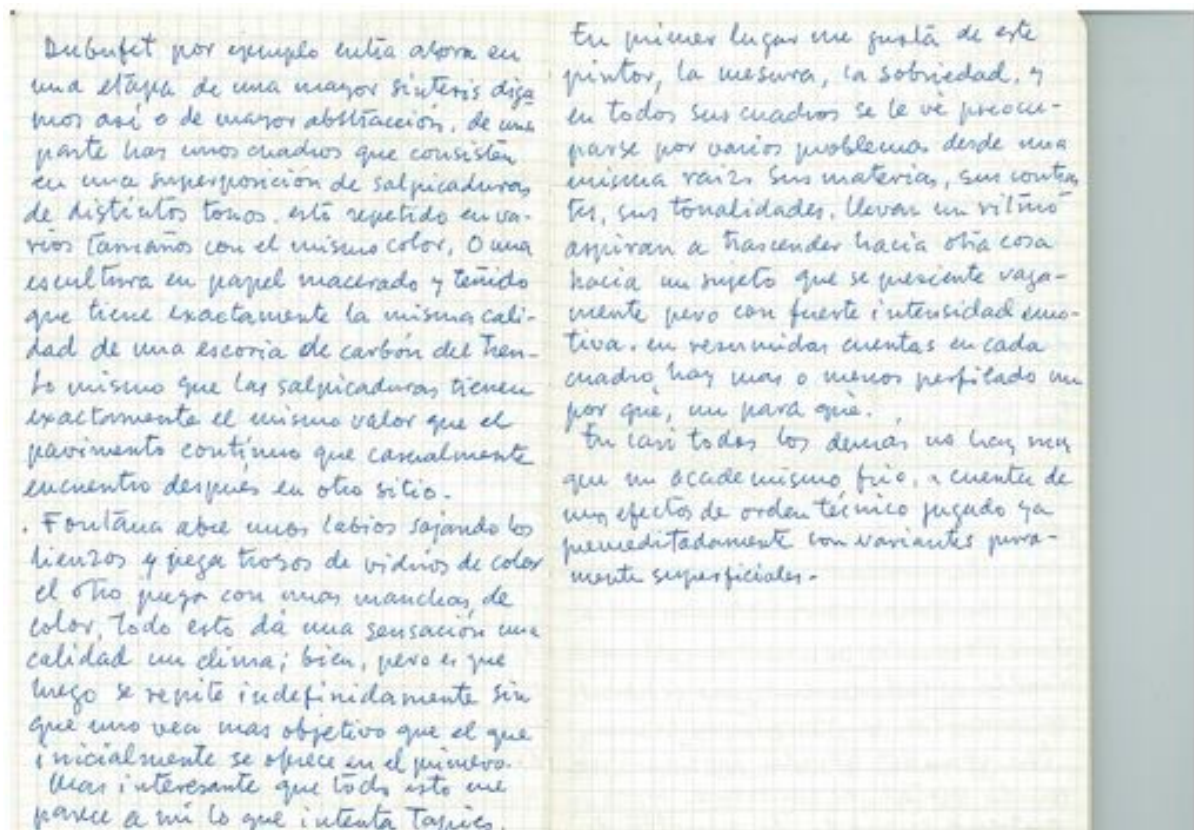 Dubufet por ejemplo entra ahora en
una etapa de una mayor sintesis diga
mos asi o de mayor abstracción, de una
parte hay unos cuadros que consisten
en una superposición de salpicaduras
de distintos tonos. esto repetido en va-
rios tamaños con el mismo color. O una
escultura en papel macerado y teñido
que tiene exactamente la misma cali-
dad de una escoria de carbón del tren-
Lo mismo que las salpicaduras tienen
exactamente el mismo valor que el
pavimento continuo que casualmente
encuentro después en otro sitio.
. Fontana abre unos labios sajando los
lienzos y pega trozos de vidrios de color
el otro juega con unas manchas de
color, todo esto dá una sensación una
calidad un clima; bien, pero es que
luego se repite indefinidamente sin
que uno vea mas objetivo que el que
inicialmente se ofrece en el primero.
Mas interesante que todo esto me
parece a mi lo que intenta Tapies.
En primer lugar me gusta de este
pintor, la mesura, la sobriedad. y
en todos sus cuadros se le vé preocu-
parse por varios problemas desde una
misma raiz. Sus materias, sus contras
tes, sus tonalidades. llevan un ritmo
aspiran a trascender hacia otra cosa
hacia un sujeto que se presiente vaga-
mente pero con fuerte intensidad emo-
tiva. en resumidas cuentas en cada
cuadro hay mas o menos perfilado un
por qué, un para qué.
En casi todos los demás no hay mas
que un academismo frio. a cuenta de
unos efectos de orden técnico jugado ya
premeditadamente con variantes pura-
mente superficiales-